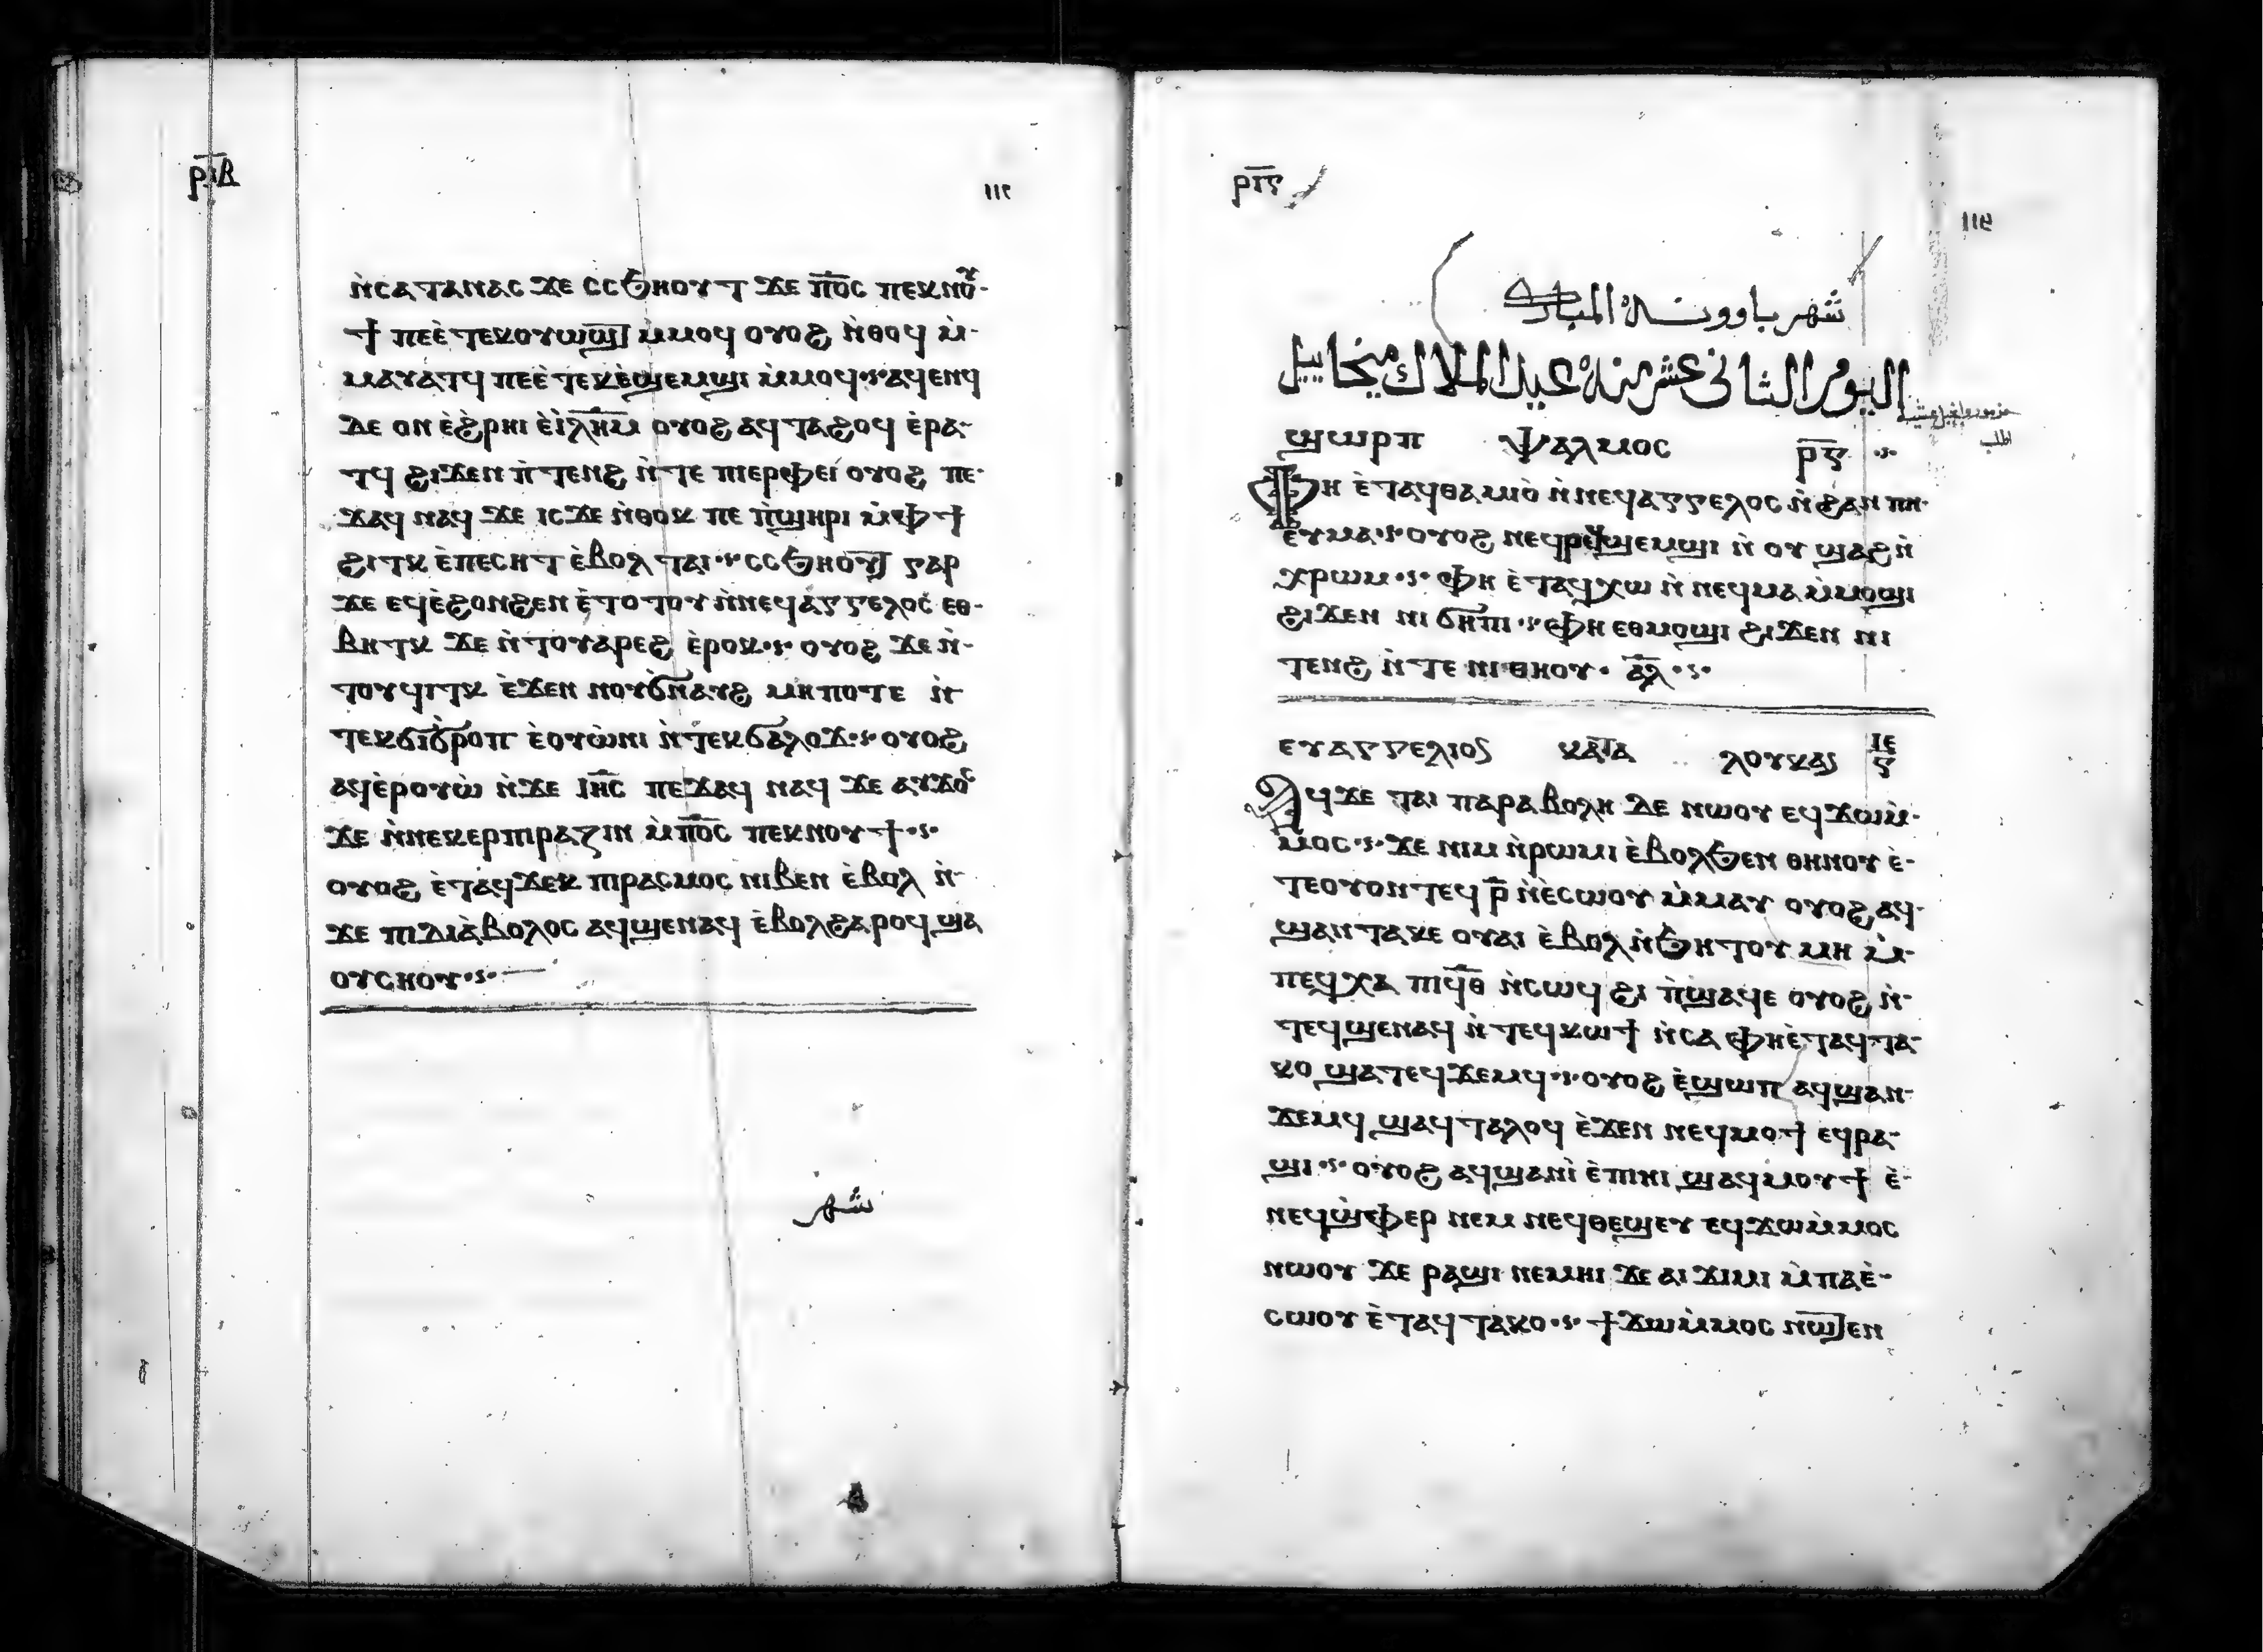 ⲣⲓⲃ
ⲛ̀ⲥⲁⲧⲁⲛⲁⲥ ϫⲉ ⲥⲥϧⲏⲟⲩⲧ ϫⲉ ⲡ̅ⲟ̅ⲥ ⲡⲉⲕⲛⲟⲩ-
ϯ ⲡⲉⲉ̀ⲧⲉⲕⲟⲩⲱϣⲧ ⲙ̀ⲙⲟϥ ⲟⲩⲟϩ ⲛ̀ⲑⲟϥ ⲙ̀-
ⲙⲁⲩⲁⲧϥ ⲡⲉⲉ̀ⲧⲉⲕⲉ̀ϣⲉⲙϣⲓ ⲙ̀ⲙⲟϥ·ⲋ·ⲁϥⲉⲛϥ
ⲇⲉ ⲟⲛ ⲉ̀ϩ̀ⲣⲏⲓ ⲉ̀ⲓ̅ⲗ̅ⲏ̅ⲙ ⲟⲩⲟϩ ⲁϥⲧⲁϩⲟϥ ⲉ̀ⲣⲁ-
ⲧϥ ϩⲓϫⲉⲛ ⲡ̀ⲧⲉⲛϩ ⲛ̀ⲧⲉ ⲡⲓⲉⲣⲫⲉⲓ ⲟⲩⲟϩ ⲡⲉ-
ϫⲁϥ ⲛⲁϥ ϫⲉ ⲓⲥϫⲉ ⲛ̀ⲑⲟⲕ ⲡⲉ ⲡ̀ϣⲏⲣⲓ ⲙ̀ⲫϯ
ϩⲓⲧⲕ ⲉ̀ⲡⲉⲥⲏⲧ ⲉ̀ⲃⲟⲗ ⲧⲁⲓ·ⲋ·ⲥⲥϧⲏⲟⲩⲧ ⲅⲁⲣ
ϫⲉ ⲉϥⲉ̀ϩⲟⲛϩⲉⲛ ⲉ̀ⲧⲟⲧⲟⲩ ⲛ̀ⲛⲉϥⲁⲅⲅⲉⲗⲟⲥ ⲉⲑ-
ⲃⲏⲧⲕ ϫⲉ ⲛ̀ⲧⲟⲩⲁⲣⲉϩ ⲉ̀ⲣⲟⲕ·ⲋ· ⲟⲩⲟϩ ϫⲉ ⲛ̀-
ⲧⲟⲩϥⲓⲧⲕ ⲉ̀ϫⲉⲛ ⲛⲟⲩϭⲛⲁⲩϩ ⲙⲏⲡⲟⲧⲉ ⲛ̀
ⲧⲉⲕϭⲓϭ̀ⲣⲟⲡ ⲉ̀ⲟⲩⲱ̀ⲛⲓ ⲛ̀ⲧⲉⲕϭⲁⲗⲟϫ·ⲋ·ⲟⲩⲟϩ
ⲁϥⲉ̀ⲣⲟⲩⲱ̀ ⲛ̀ϫⲉ ⲓ̅ⲏ̅ⲥ ⲡⲉϫⲁϥ ⲛⲁϥ ϫⲉ ⲁⲩϫⲟⲥ
ϫⲉ ⲛ̀ⲛⲉⲕⲉⲣⲡⲓⲣⲁⲍⲓⲛ ⲙ̀ⲡ̅ⲟ̅ⲥ ⲡⲉⲕⲛⲟⲩϯ·ⲋ·
ⲟⲩⲟϩ ⲉ̀ⲧⲁϥϫⲉⲕ ⲡⲓⲣⲁⲥⲙⲟⲥ ⲛⲓⲃⲉⲛ ⲉ̀ⲃⲟⲗ ⲛ̀-
ϫⲉ ⲡⲓⲇⲓⲁ̀ⲃⲟⲗⲟⲥ ⲁϥϣⲉⲛⲁϥ ⲉ̀ⲃⲟⲗϩⲁⲣⲟϥ ϣⲁ
ⲟⲩⲥⲏⲟⲩ·ⲋ·
شهر
ⲣⲓⲋ
شهر باوونه المبارك
اليوم الثاني عشر منه عيد الملاك ميخاييل
ϣⲱⲣⲡ ⲯⲁⲗⲙⲟⲥ ⲣ̅ⲅ̅ ·ⲋ·
ⲫⲏ ⲉ̀ⲧⲁϥⲑⲁⲙⲓⲟ̀ ⲛ̀ⲛⲉϥⲁⲅⲅⲉⲗⲟⲥ ⲛ̀ϩⲁⲛ ⲡⲛ-
ⲉⲩⲙⲁ·ⲋ·ⲟⲩⲟϩ ⲛⲉϥⲣⲉϥϣⲉⲙϣⲓ ⲛ̀ ⲟⲩ ϣⲁϩ ⲛ̀
ⲭⲣⲱⲙ·ⲋ· ⲫⲏ ⲉ̀ⲧⲁϥⲭⲱ ⲛ̀ ⲛⲉϥⲙⲁⲙ̀ⲙⲟϣⲓ
ϩⲓϫⲉⲛ ⲛⲓ ϭⲏⲡⲓ·ⲋ·ⲫⲏ ⲉⲑⲙⲟϣⲓ ϩⲓϫⲉⲛ ⲛⲓ
ⲧⲉⲛϩ ⲛ̀ⲧⲉ ⲛⲓⲑⲏⲟⲩ· ⲁ̅ⲗ·ⲋ·
ⲉⲩⲁⲅⲅⲉⲗⲓⲟⲥ ⲕⲁⲧⲁ ⲗⲟⲩⲕⲁⲥ ⲓ̅ⲉ̅ ⲅ
ⲁϥϫⲉ ⲧⲁⲓ ⲡⲁⲣⲁⲃⲟⲗⲏ ⲇⲉ ⲛⲱⲟⲩ ⲉϥϫⲱⲙ̀-
ⲙⲟⲥ·ⲋ·ϫⲉ ⲛⲓⲙ ⲛ̀ⲣⲱⲙⲓ ⲉ̀ⲃⲟⲗϧⲉⲛ ⲑⲏⲛⲟⲩ ⲉ̀-
ⲧⲉⲟⲩⲟⲛⲧⲉϥ ⲣ̅ ⲛ̀ⲉ̀ⲥⲱⲟⲩ ⲙ̀ⲙⲁⲩ ⲟⲩⲟϩ ⲁϥ-
ϣⲁⲛⲧⲁⲕⲉ ⲟⲩⲁⲓ ⲉ̀ⲃⲟⲗ ⲛ̀ϧⲏⲧⲟⲩ ⲙⲏ ⲙ̀-
ⲡⲉϥⲭⲁ ⲡⲓϥ̅ⲑ̅ ⲛ̀ⲥⲱϥ ϩⲓ ⲡ̀ϣⲁϥⲉ ⲟⲩⲟϩ ⲛ̀-
ⲧⲉϥϣⲉⲛⲁϥ ⲛ̀ⲧⲉϥⲕⲱϯ ⲛ̀ⲥⲁ ⲫⲏⲉ̀ⲧⲁϥⲧⲁ-
ⲕⲟ ϣⲁⲧⲉϥϫⲉⲙϥ·ⲋ·ⲟⲩⲟϩ ⲉ̀ϣⲱⲡ ⲁϥϣⲁⲛ-
ϫⲉⲙϥ ϣⲁϥⲧⲁⲗⲟϥ ⲉ̀ϫⲉⲛ ⲛⲉϥⲙⲟϯ ⲉϥⲣⲁ-
ϣⲓ·ⲋ·ⲟⲩⲟϩ ⲁϥϣⲁⲛⲓ̀ ⲉ̀ⲡⲓⲏⲓ ϣⲁϥⲙⲟⲩϯ ⲉ̀-
ⲛⲉϥϣ̀ⲫⲉⲣ ⲛⲉⲙ ⲛⲉϥⲑⲉϣⲉⲩ ⲉϥϫⲱⲙ̀ⲙⲟⲥ
ⲛⲱⲟⲩ ϫⲉ ⲣⲁϣⲓ ⲛⲉⲙⲏⲓ ϫⲉ ⲁⲓ ϫⲓⲙⲓ ⲙ̀ⲡⲁⲉ̀-
ⲥⲱⲟⲩ ⲉ̀ⲧⲁϥⲧⲁⲕⲟ·ⲋ· ϯϫⲱⲙ̀ⲙⲟⲥ ⲛⲱⲧⲉⲛ